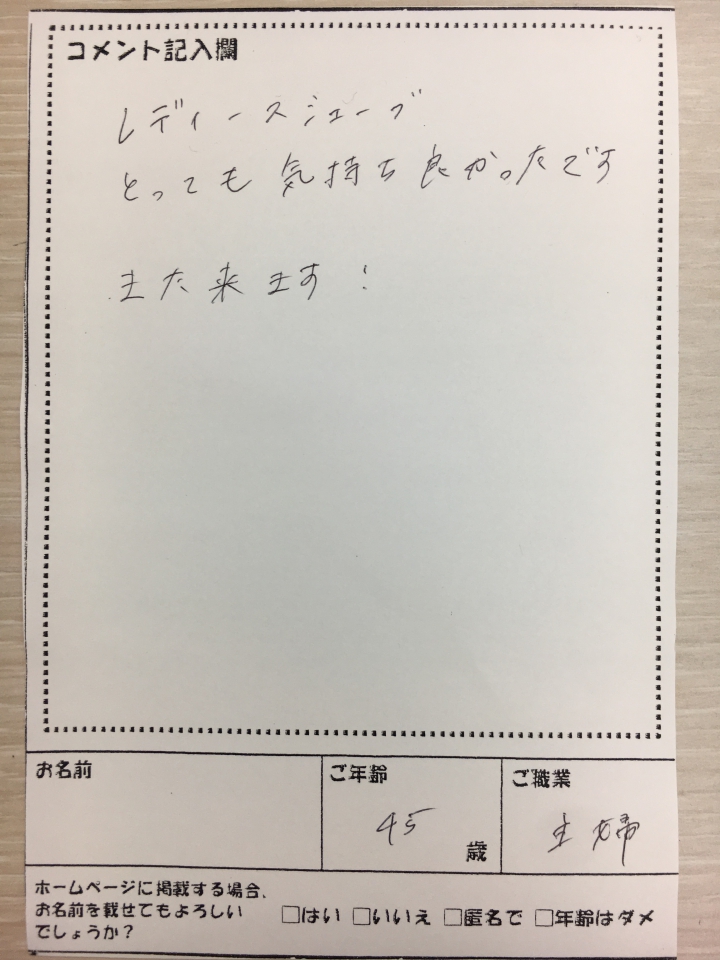 コメント記入欄
レディースシェーブ
とっても気持ち良かったです
また来ます!
お名前
ご年齢
45
歳
ご職業
主婦
ホームページに掲載する場合、
お名前を載せてもよろしい
でしょうか?
□はい □いいえ □匿名で □年齢はダメ